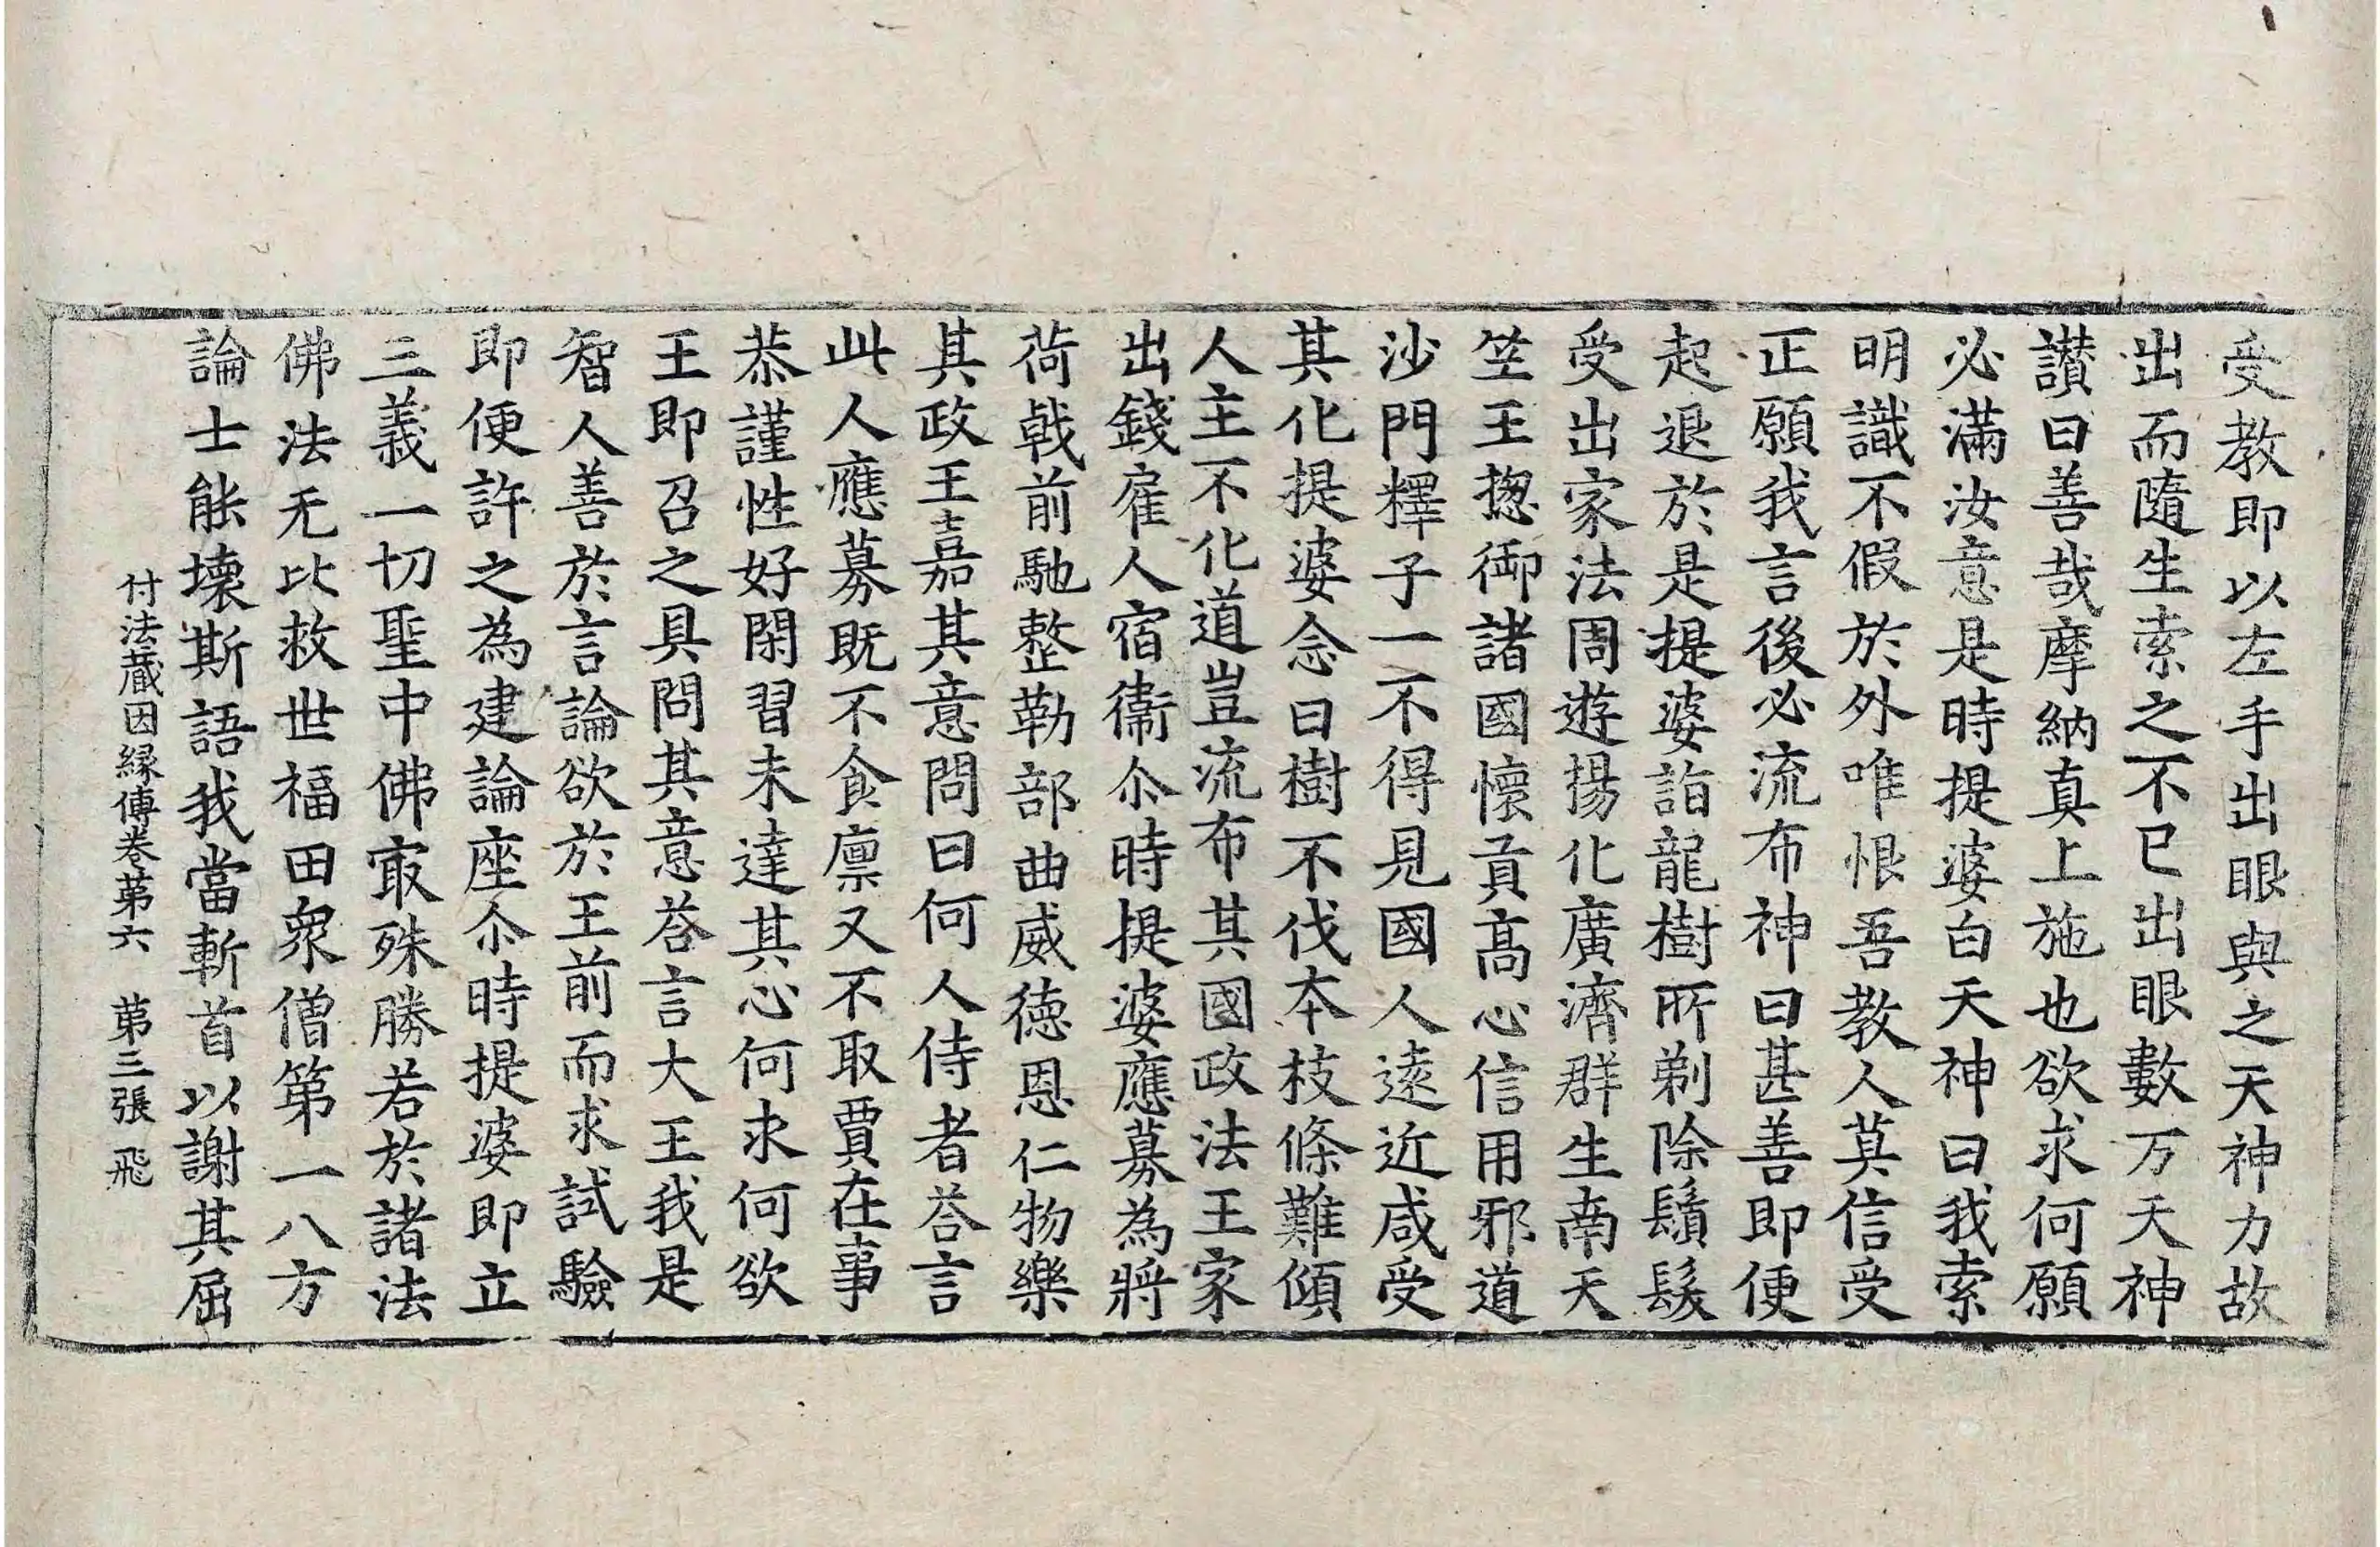 受教即以左手出眼與之天神力故
出而隨生索之不已出眼數万天神
讃曰善哉摩納真上施也欲求何願
必滿汝意是時提婆白天神曰我索
明識不假於外唯恨吾教人莫信受
正願我言後必流布神曰甚善即便
起退於是提婆詣龍樹所剃除鬚髮
受出家法周遊揚化廣濟群生南天
竺王揔御諸國懷貢高心信用邪道
沙門釋子一不得見國人遠近咸受
其化提婆念曰樹不伐本枝條難傾
人主不化道豈流布其國政法王家
出錢雇人宿衞尒時提婆應募為將
荷戟前馳整勒部曲威徳恩仁物樂
其政王嘉其意問曰何人侍者荅言
此人應募既不食廪又不取賈在事
恭謹性好閑習未達其心何求何欲
王即召之具問其意荅言大王我是
智人善於言論欲於王前而求試驗
即便許之為建論座尒時提婆即立
三義一切聖中佛冣殊勝若於諸法
佛法无比救世福田衆僧第一八方
論士能壞斯語我當斬首以謝其屈
付法蔵因縁傳卷苐六　苐三張　飛